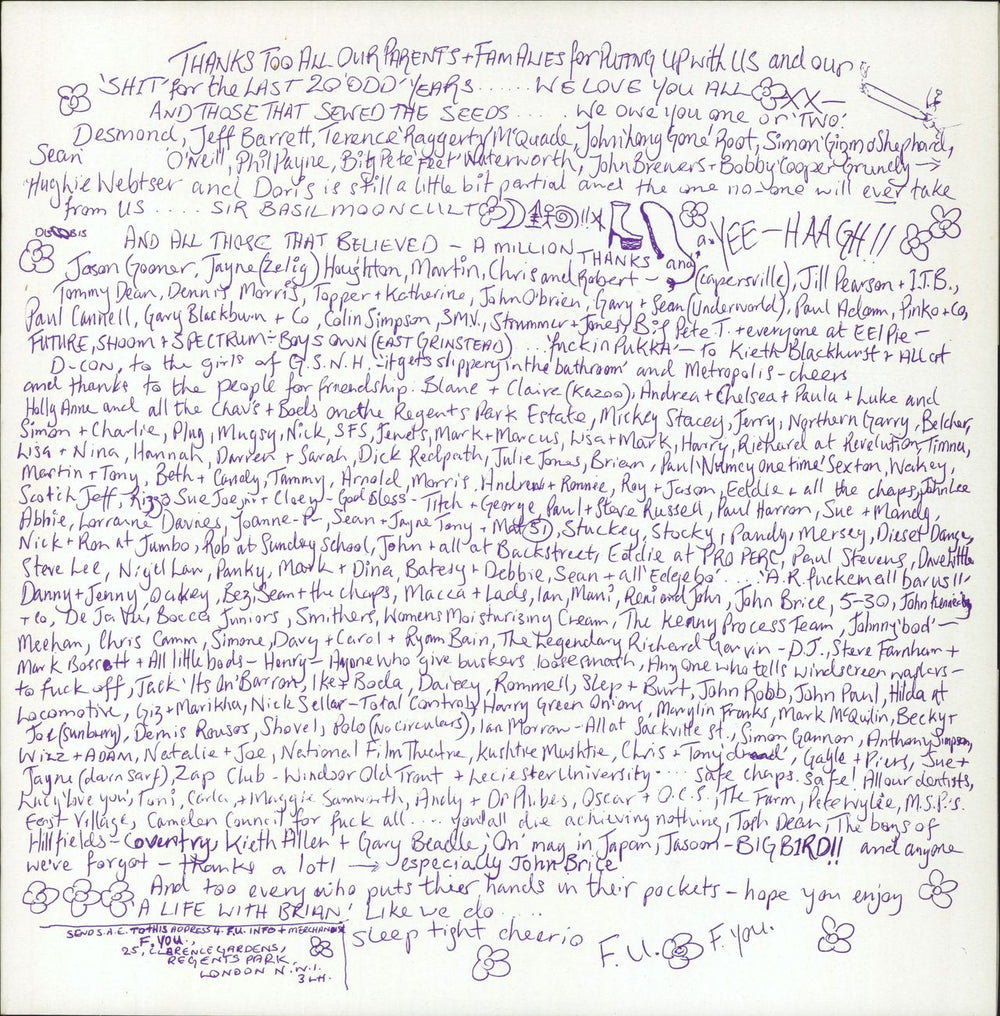 THANKS TOO ALL OUR PARENTS + FAMALIES for PUTING UP with US and our
'SHIT' for the LAST 20 'ODD' YEARS ...... WE LOVE YOU ALL XX—
AND THOSE THAT SEWED THE SEEDS ...... WE OWE YOU ONE or TWO!
Desmond, Jeff Barrett, Terence 'Raggerty' McQuade, John 'Long Gone' Root, Simon 'Gizmo' Shephard,
Sean O'Neill, Phil Payne, Big Pete 'Feet' Waterworth, John Brewers + Bobby Cooper Grundy →
Hughie Webtser and Doris is still a little bit partial and the one no-one will ever take
from US ..... SIR BASIL MOONCULT !!x
AND ALL THOSE THAT BELIEVED — A MILLION THANKS and a YEE-HAAGH!!
Jason Gooner, Jayne (Zelig) Houghton, Martin, Chris and Robert — (Capersville), Jill Pearson + I.T.B.,
Tommy Dean, Dennis Morris, Topper + Katherine, John O'brien, Gary + Sean (Underworld), Paul Adam, Pinko + Co,
Paul Cannell, Gary Blackburn + Co, Colin Simpson, S.M.V., Strummer + Jones, Big Pete T. + everyone at EEl Pie —
FUTURE, SHOOM + SPECTRUM - BOYS OWN (EAST GRINSTEAD) ... 'fuckin Pukka' — To Kieth Blackhurst + All at
D-CON, to the girls of G.S.N.H. - 'it gets slippery in the bathroom' and Metropolis - cheers
and thanks to the people for friendship. Blane + Claire (Kazoo), Andrea + Chelsea + Paula + Luke and
Holly Anne and all the Chav's + Bods on the Regents Park Estate, Mickey Stacey, Jerry, Northern Garry, Belcher,
Simon + Charlie, Plug, Mugsy, Nick, SFS, Jewels, Mark + Marcus, Lisa + Mark, Harry, Richard at Revolution, Timna,
Lisa + Nina, Hannah, Darren + Sarah, Dick Redpath, Julie Jones, Brian, Paul 'Numey one time' Sexton, Wakey,
Martin + Tony, Beth + Candy, Tammy, Arnold, Morris, Andrew + Ronnee, Roy + Jason, Eddie + all the chaps, John Lee
Scotch Jeff, Rizzo Sue Joe, jnr + Cloey - God Bless - Titch + George, Paul + Steve Russell, Paul Harron, Sue + Mandy,
Abbie, Lorraine Davies, Joanne-P-, Sean + Jayne Tony + Mat 51, Stuckey, Stocky, Pandy, Mersey, Diesel Danay,
Nick + Ron at Jumbo, Rob at Sunday School, John + all at Backstreet, Eddie at PRO PERC, Paul Stevens, Dave Little
Steve Lee, Nigel Law, Panky, Mark + Dina, Batesy + Debbie, Sean + all 'Edegbo' .... 'A.R. fuckem all bar us!!'
Danny + Jenny Oakey, Bez, Sean + the chaps, Macca + Lads, Ian, Mani, Reni and John, John Brice, 5-30, John Kennedy
+ co, De Ja Vu, Bocca Juniors, Smithers, Womens Moisturising Cream, The Kenny Process Team, Johnny 'bod' —
Meehan, Chris Camm, Simone, Davy + Carol + Ryan Bain, The Legendary Richard Garvin - D.J., Steve Farnham +
Mark Bossett + All little bods - Henry - Anyone who give buskers loose smash, Any one who tells windscreen wipers —
to fuck off, Jack 'Its On' Barron, Ike + Boda, Daisey, Rommell, Slep + Burt, John Robb, John Paul, Hilda at
Locomotive, Giz + Marikha, Nick Sellar - Total Control, Harry Green Onions, Marylin Franks, Mark McQuilin, Becky +
Joe (Sunbury), Demis Rousos, Shovel, Polo (no circulars), Ian Morrow - All at Sackville st., Simon Gannon, Anthony Simpson,
Wizz + ADAM, Natalie + Joe, National Film Theatre, Kushtie Mushtie, Chris + Tony, Gayle + Piers, Sue +
Jayne (darn sarf), Zap Club - Windsor Old Trout + Leciester University .... Safe chaps. Safe! All our dentists,
Lucy 'love you', Toni, Carla, + Maggie Samworth, Andy + Dr Phibes, Oscar + O.C.S, The Farm, Pete Wylie, M.S.P.'s.
East Village, Camden Council for fuck all .... you'll die achieving nothing, Tosh Dean, The boys of
Hillfields - Coventry, Kieth Allen + Gary Beadle, 'On' may in Japan, Jasoon - BIG BIRD!! and anyone
we've forgot — thanks a lot! → especially John Brice
And too every who puts thier hands in their pockets - hope you enjoy
'A LIFE WITH BRIAN' Like we do ....
Sleep tight cheerio F.U. F. YOU.
SEND S.A.E. TO THIS ADDRESS 4. F.U. INFO + MERCHANDISE
F. YOU.,
25, CLARENCE GARDENS,
REGENTS PARK.
LONDON N.W.1.
3LH.